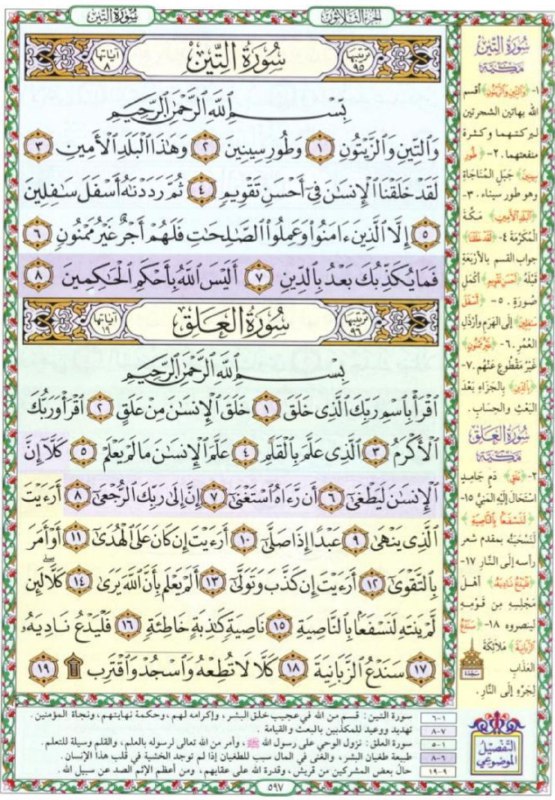 سورة التين
الجزء الثلاثون
سُورَةُ التِّينِ
ترتيبها ٩٥
آياتها ٨
بِسْمِ ٱللَّهِ ٱلرَّحْمَٰنِ ٱلرَّحِيمِ
وَٱلتِّينِ وَٱلزَّيْتُونِ ١ وَطُورِ سِينِينَ ٢ وَهَٰذَا ٱلْبَلَدِ ٱلْأَمِينِ ٣
لَقَدْ خَلَقْنَا ٱلْإِنسَٰنَ فِىٓ أَحْسَنِ تَقْوِيمٍ ٤ ثُمَّ رَدَدْنَٰهُ أَسْفَلَ سَٰفِلِينَ
٥ إِلَّا ٱلَّذِينَ ءَامَنُوا۟ وَعَمِلُوا۟ ٱلصَّٰلِحَٰتِ فَلَهُمْ أَجْرٌ غَيْرُ مَمْنُونٍ ٦
فَمَا يُكَذِّبُكَ بَعْدُ بِٱلدِّينِ ٧ أَلَيْسَ ٱللَّهُ بِأَحْكَمِ ٱلْحَٰكِمِينَ ٨
سُورَةُ العَلَقِ
ترتيبها ٩٦
آياتها ١٩
بِسْمِ ٱللَّهِ ٱلرَّحْمَٰنِ ٱلرَّحِيمِ
ٱقْرَأْ بِٱسْمِ رَبِّكَ ٱلَّذِى خَلَقَ ١ خَلَقَ ٱلْإِنسَٰنَ مِنْ عَلَقٍ ٢ ٱقْرَأْ وَرَبُّكَ
ٱلْأَكْرَمُ ٣ ٱلَّذِى عَلَّمَ بِٱلْقَلَمِ ٤ عَلَّمَ ٱلْإِنسَٰنَ مَا لَمْ يَعْلَمْ ٥ كَلَّآ إِنَّ
ٱلْإِنسَٰنَ لَيَطْغَىٰٓ ٦ أَن رَّءَاهُ ٱسْتَغْنَىٰٓ ٧ إِنَّ إِلَىٰ رَبِّكَ ٱلرُّجْعَىٰٓ ٨ أَرَءَيْتَ
ٱلَّذِى يَنْهَىٰ ٩ عَبْدًا إِذَا صَلَّىٰٓ ١٠ أَرَءَيْتَ إِن كَانَ عَلَى ٱلْهُدَىٰٓ ١١ أَوْ أَمَرَ
بِٱلتَّقْوَىٰٓ ١٢ أَرَءَيْتَ إِن كَذَّبَ وَتَوَلَّىٰٓ ١٣ أَلَمْ يَعْلَم بِأَنَّ ٱللَّهَ يَرَىٰ ١٤ كَلَّا لَئِن
لَّمْ يَنتَهِ لَنَسْفَعًۢا بِٱلنَّاصِيَةِ ١٥ نَاصِيَةٍ كَٰذِبَةٍ خَاطِئَةٍ ١٦ فَلْيَدْعُ نَادِيَهُۥ
١٧ سَنَدْعُ ٱلزَّبَانِيَةَ ١٨ كَلَّا لَا تُطِعْهُ وَٱسْجُدْ وَٱقْتَرِب ۩ ١٩
سورة التين
مكية
١- ﴿والتين والزيتون﴾ أقسم
الله بهاتين الشجرتين
لبركتهما وكثرة
منفعتهما، ٢- ﴿طور
سينين﴾ جبل المناجاة
وهو طور سيناء، ٣-
﴿البلد الأمين﴾ مكة
المكرمة ٤- ﴿لقد خلقنا﴾
جواب القسم بالأربعة
قبله ﴿أحسن تقويم﴾ أكمل
صورة، ٥- ﴿أسفل
سافلين﴾ إلى الهرم وأرذل
العمر، ٦- ﴿غير ممنون﴾
غير مقطوع عنهم، ٧-
﴿بالدين﴾ بالجزاء بعد
البعث والحساب.
سورة العلق
مكية
٢- ﴿علق﴾ دم جامد
استحال إليه المني ١٥-
﴿لنسفعا بالناصية﴾
لنسحبنه بمقدم شعر
رأسه إلى النار ١٧-
﴿فليدع ناديه﴾ أهل
مجلسه من قومه
لينصروه ١٨- ﴿سندع
الزبانية﴾ ملائكة
العذاب
لجره إلى النار.
سجدة
التفصيل الموضوعي
٦-١ سورة التين: قسم من الله في عجيب خلق البشر، وإكرامه لهم، وحكمة نهايتهم، ونجاة المؤمنين.
٨-٧ تهديد ووعيد للمكذبين بالبعث والقيامة
٥-١ سورة العلق: نزول الوحي على رسول الله ﷺ، وأمر من الله تعالى لرسوله بالعلم، والقلم وسيلة للتعلم.
٨-٦ طبيعة طغيان البشر، والغنى في المال سبب للطغيان إذا لم توجد الخشية في قلب هذا الإنسان.
١٩-٩ حال بعض المشركين من قريش، وقدرة الله على عقابهم، ومن أعظم الإثم الصد عن سبيل الله.
٥٩٧